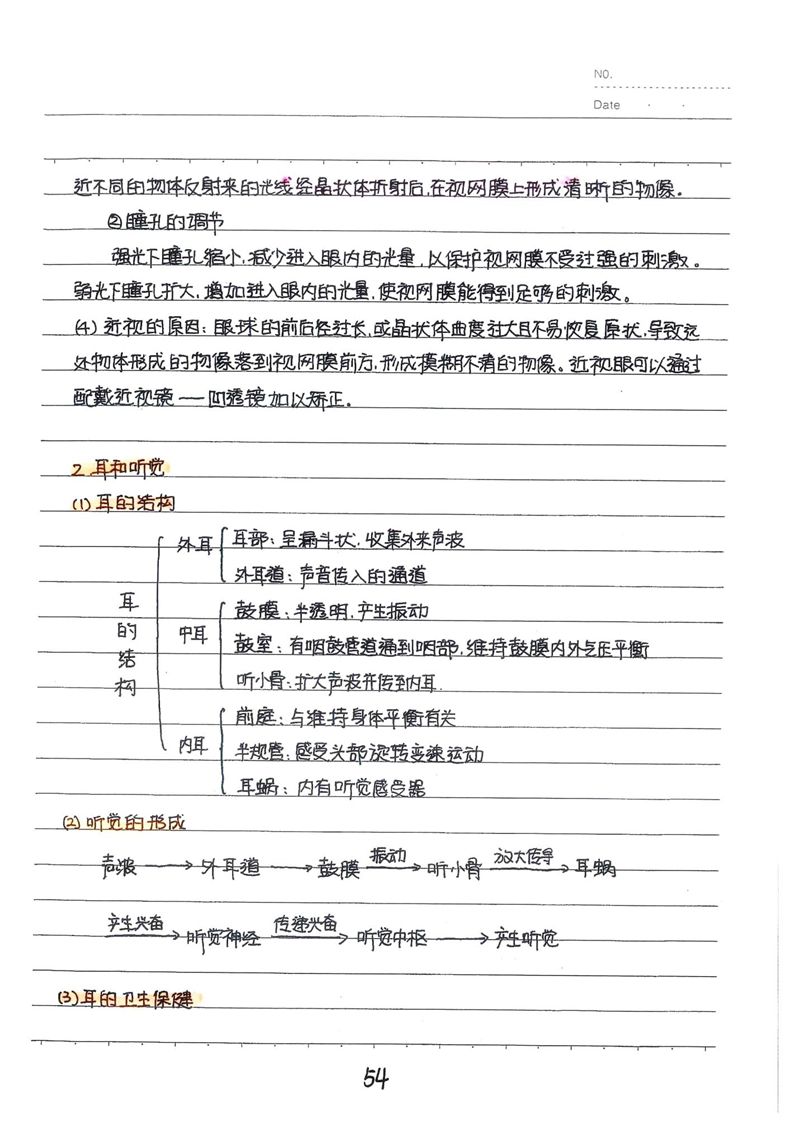 NO.
Date · ·
近不同的物体反射来的光线经晶状体折射后,在视网膜上形成清晰的物像。
②瞳孔的调节
强光下瞳孔缩小,减少进入眼内的光量,以保护视网膜不受过强的刺激。
弱光下瞳孔扩大,增加进入眼内的光量,使视网膜能得到足够的刺激。
(4) 近视的原因:眼球的前后径过长,或晶状体曲度过大且不易恢复原状,导致远
处物体形成的物像落到视网膜前方,形成模糊不清的物像。近视眼可以通过
配戴近视镜——凹透镜加以矫正。
2 耳和听觉
(1) 耳的结构
耳的结构
外耳
耳部:呈漏斗状,收集外来声波
外耳道:声音传入的通道
中耳
鼓膜:半透明,产生振动
鼓室:有咽鼓管道通到咽部,维持鼓膜内外气压平衡
听小骨:扩大声波并传到内耳.
内耳
前庭:与维持身体平衡有关
半规管:感受头部旋转变速运动
耳蜗:内有听觉感受器
(2) 听觉的形成
声波 → 外耳道 → 鼓膜 振动→ 听小骨 放大传导→ 耳蜗
产生兴奋→ 听觉神经 传递兴奋→ 听觉中枢 → 产生听觉
(3) 耳的卫生保健
54